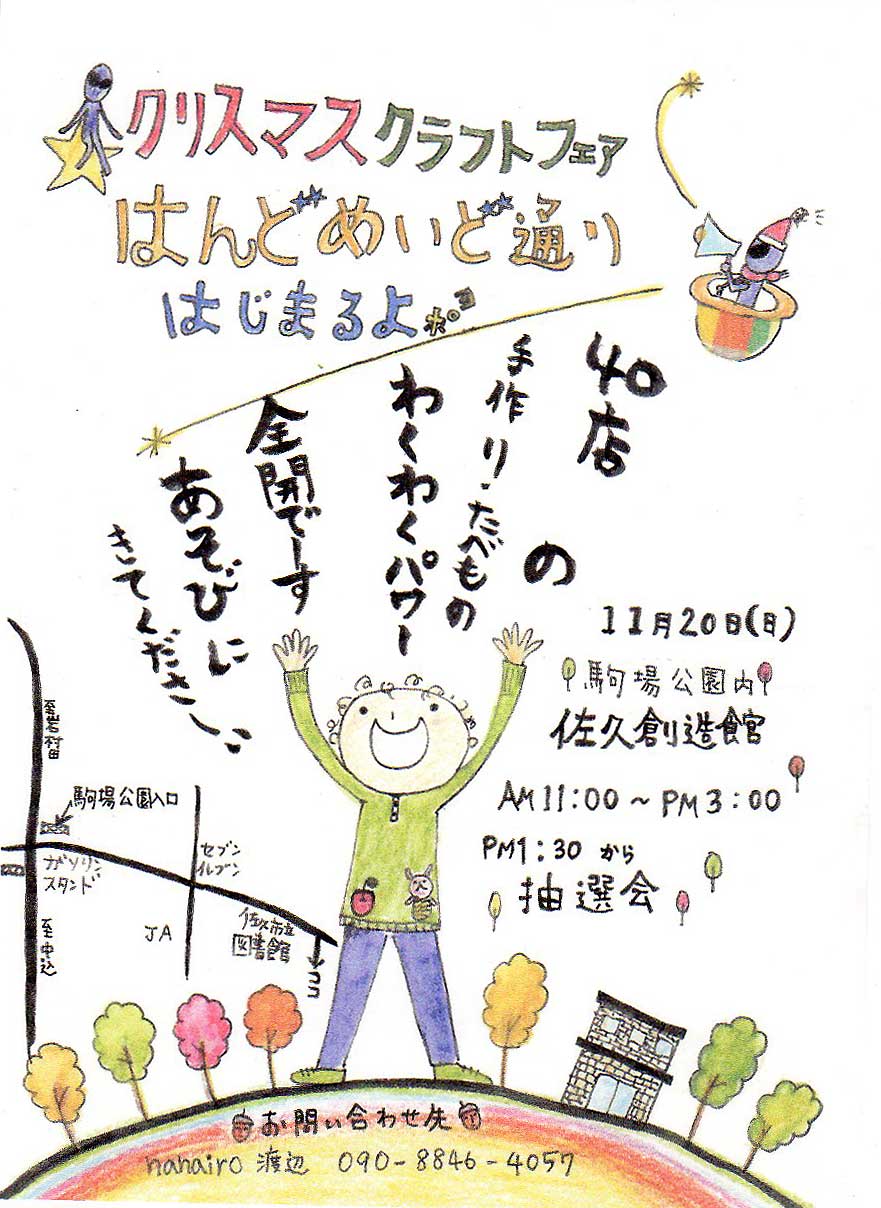 クリスマスクラフトフェア
はんどめいど通り
はじまるよポヨ
40店の
手作り・たべもの
わくわくパワー
全開でーす
あそびに
きてください
11月20日(日)
駒場公園内
佐久創造館
AM11:00～PM3:00
PM1:30から
抽選会
至岩村田
駒場公園入口
ガソリン
スタンド
セブン
イレブン
至中込
JA
佐久市立
図書館
ココ
お問い合わせ先
nanairo 渡辺 090-8846-4057